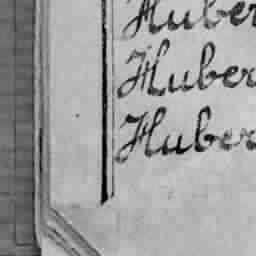 Huber
Huber
Huber